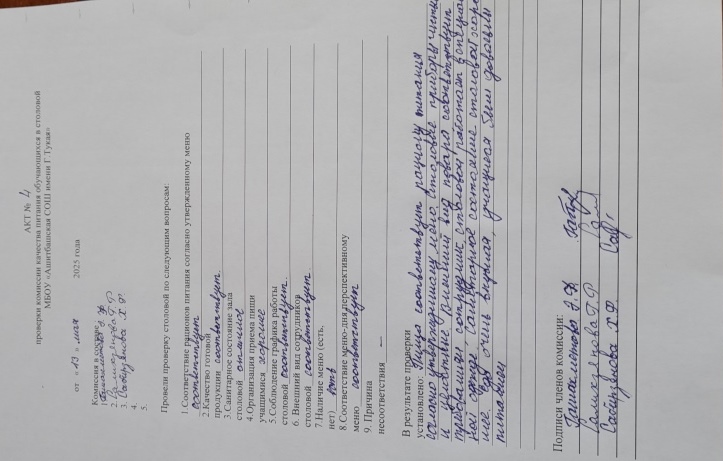 АКТ № 4
проверки комиссии качества питания обучающихся в столовой
МБОУ «Ашитбашская СОШ имени Г.Тукая»
от «13» мая 2025 года
Комиссия в составе
1.
2.
3. Сабирзянова Х.Ф
4.
5.
Провели проверку столовой по следующим вопросам:
1.Соответствие рационов питания согласно утвержденному меню
соответствует
2.Качество готовой
продукции соответствует.
3.Санитарное состояние зала
столовой отличное
4.Организация приема пищи
учащимися хорошее
5.Соблюдение графика работы
столовой соответствует.
6. Внешний вид сотрудников
столовой соответствует
7.Наличие меню (есть,
нет) есть
8.Соответствие меню-дня перспективному
меню соответствует
9. Причина
несоответствия —
В результате проверки
установлено: Пища соответствует рациону питания
согласно утвержденному меню. Столовые приборы чистые
и Внешний вид повара соответствует
требованиям. сотрудник столовой работает в специаль
ной одежде. Санитарное состояние столовой хоро
шее. Еда очень вкусная, учащиеся были довольны
питанием
Подписи членов комиссии:
Галимзянова Г.Р
Сабирзянова Х.Ф.